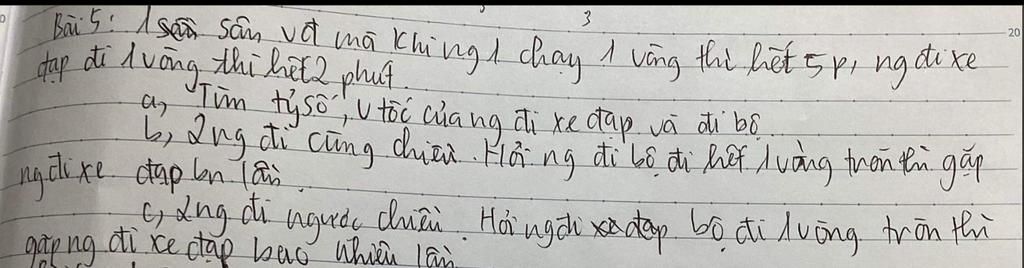 3
20
Bài 5: 1 sân vđ mà khi ng1 chạy 1 vòng thì hết 5p, ng đi xe
đạp đi 1 vòng thì hết 2 phút.
a, Tìm tỷ số v tốc của ng đi xe đạp và đi bộ
b, 2ng đi cùng chiều. Hỏi ng đi bộ đi hết 1 vòng tròn thì gặp
ng đi xe đạp bn lần.
c, 2ng đi ngược chiều. Hỏi ng đi bộ đi 1 vòng tròn thì
gặp ng đi xe đạp bao nhiêu lần.